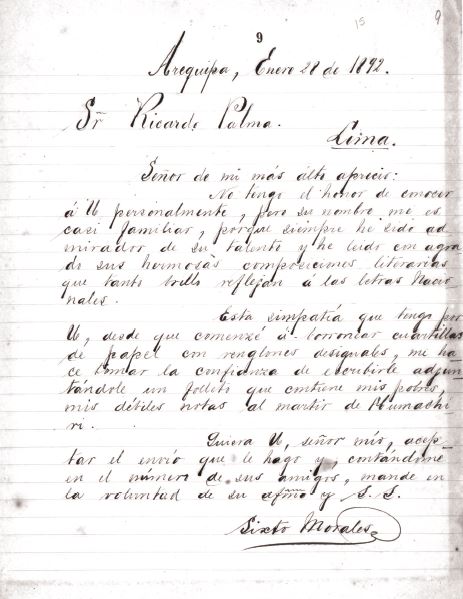 15
9
9
Arequipa, Enero 28 de 1892.
Sr Ricardo Palma.
Lima.
Señor de mi más alto aprecio:
No tengo el honor de conocer
á U personalmente, pero su nombre me es
casi familiar, porque siempre he sido ad
mirador de su talento y he leido con agra
do sus hermosas composiciones literarias
que tanto brillo reflejan á las letras Nacio
nales.
Esta simpatía que tengo por
U, desde que comenzé á borronear cuartillas
de papel con renglones desiguales, me ha
ce tomar la confianza de escribirle adjun
tándole un folleto que contiene mis pobres,
mis débiles notas al martir de Humachi
ri.
Quiera U, señor mio, acep
tar el envío que le hago y, contándome
en el número de sus amigos, mande en
la voluntad de su afmo y S. S.
Sixto Morales